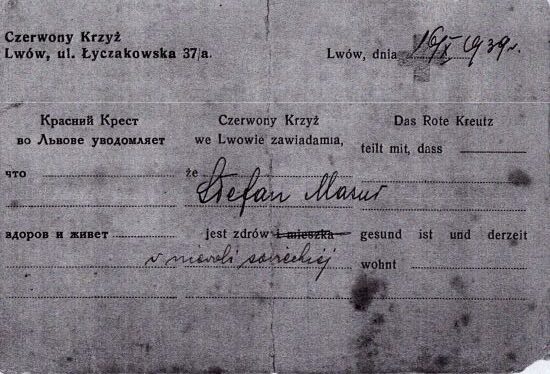 Czerwony Krzyż
Lwów, ul. Łyczakowska 37/a.
Lwów, dnia 16/X 1939 r.
Красний Крест
во Львове уведомляет
что
адоров и живет
Czerwony Krzyż
we Lwowie zawiadamia,
że
Stefan Masur
jest zdrów i mieszka
w niewoli sowieckiej
Das Rote Kreutz
teilt mit, dass
gesund ist und derzeit
wohnt